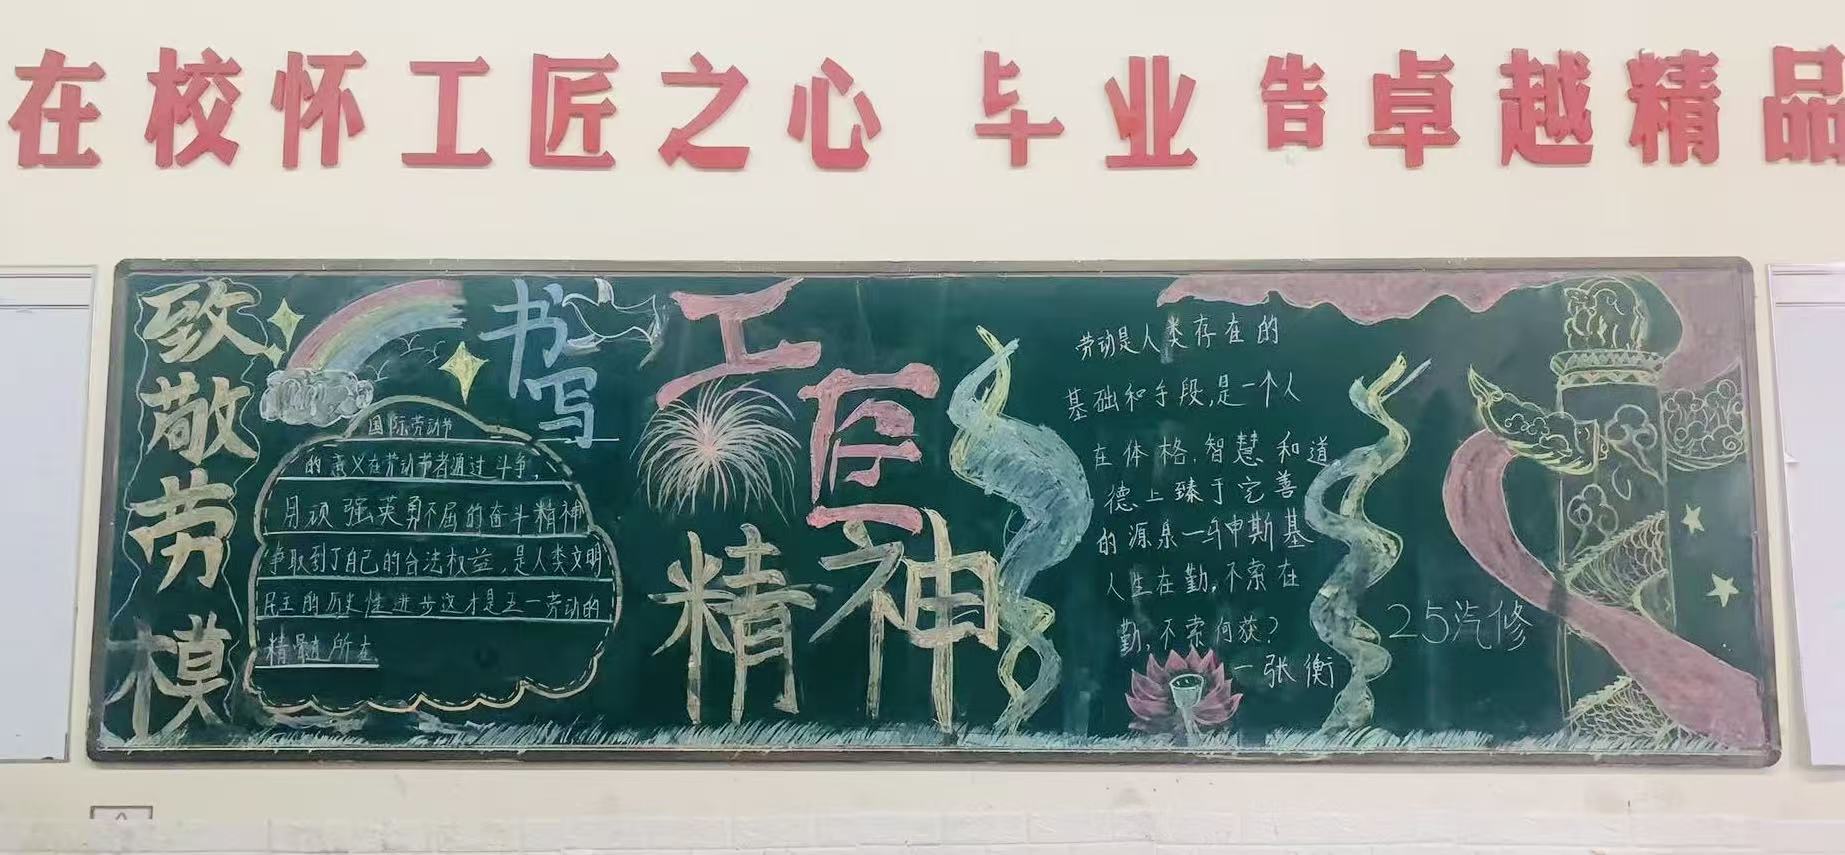 在校怀工匠之心 毕业告卓越精品
致敬劳模
书写
工匠
精神
国际劳动节
的意义在劳动节者通过斗争,
用顽强英勇不屈的奋斗精神
争取到了自己的合法权益,是人类文明
民主的历史性进步这才是五一劳动的
精髓所在
劳动是人类存在的
基础和手段,是一个人
在体格,智慧和道
德上臻于完善
的源泉—马申斯基
人生在勤,不索在
勤,不索何获?
—张衡
25汽修